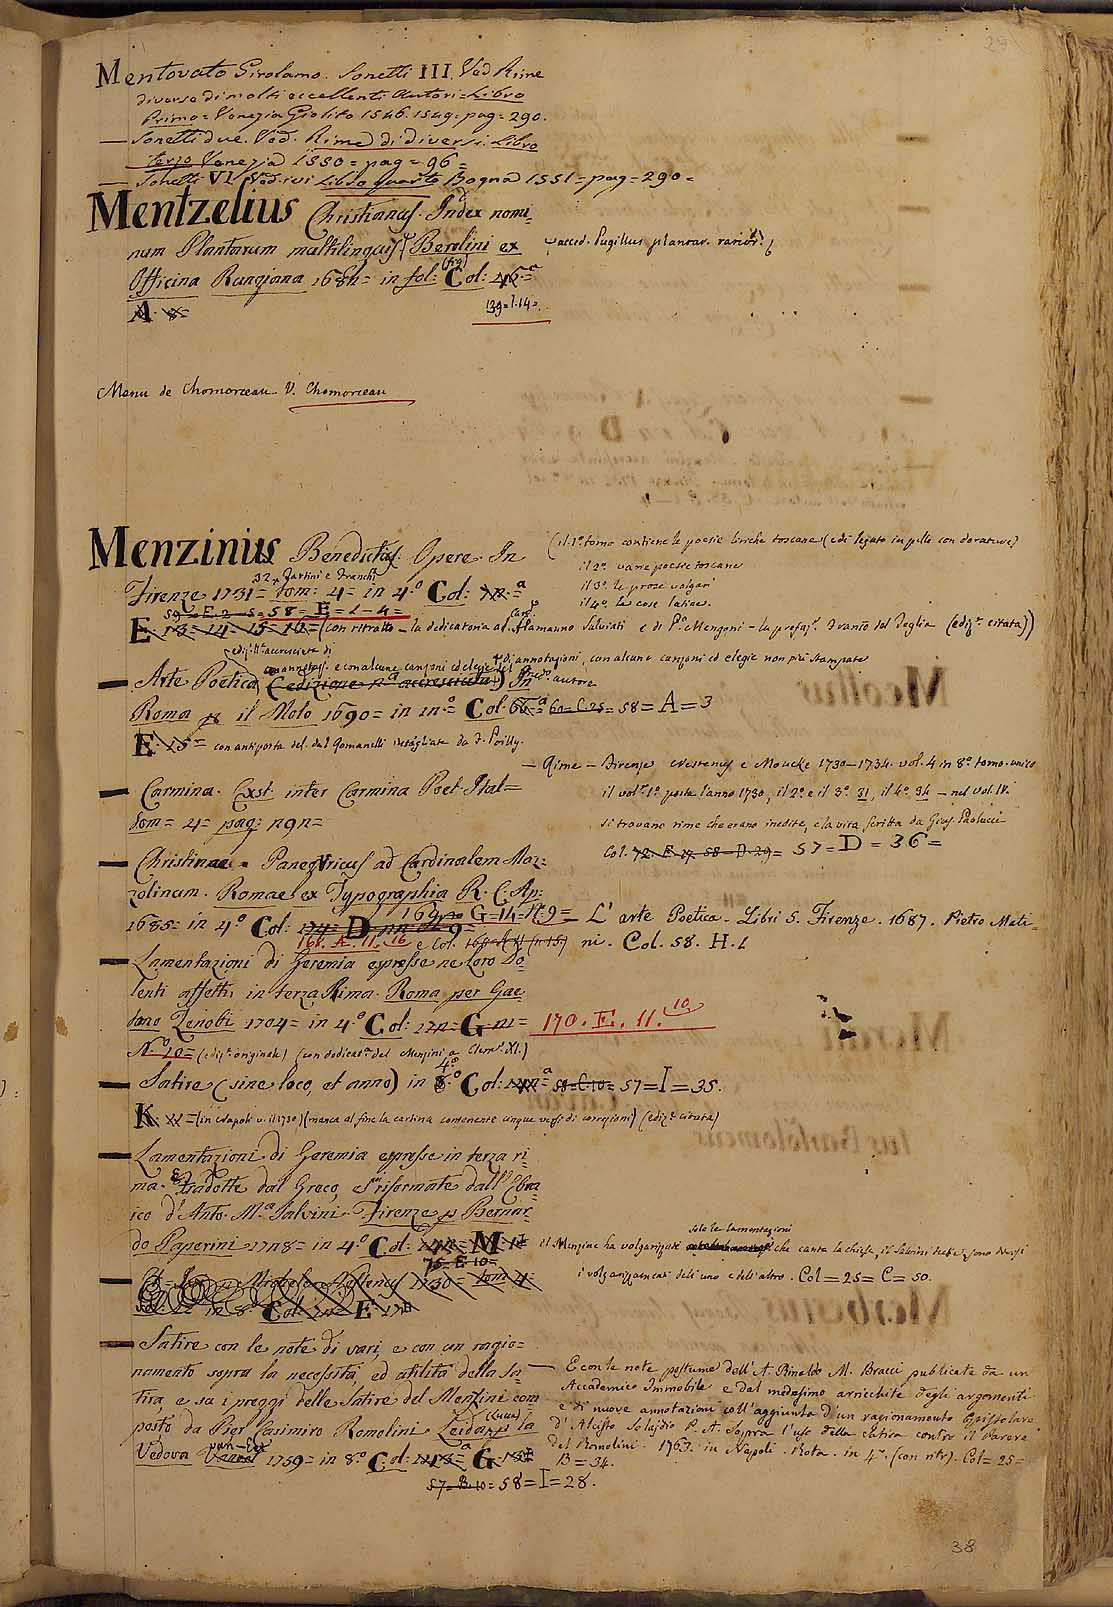 Mentovato Girolamo. Sonetti III. Ved Rime
diverse di molti eccellenti Autori = Libro
Primo = Venezia Giolito 1546. 1549 = pag = 290.
— Sonetti due. Ved. Rime di diversi. Libro
terzo Venezia 1550 = pag = 96 =
— Sonetti VI. Ved. ivi Libro quarto Bologna 1551 = pag = 290 =
Mentzelius Christianus. Index nomi:
num Plantarum multilinguis Berolini ex
acced. Pugillus plantar. rarior.
Officina Rungiana 1682 = in fol: (fig) Col: 46 = a
A. 8 =
139 = I. 14 =
Menu de Chomorceau V. Chomorceau
Menzinius Benedictus. Opere In
(il 1.o tomo contiene le poesie liriche toscane (ediz legato in pelle con dorature)
il 2.o varie poesie toscane
il 3.o le prose volgari
il 4.o le cose latine.
Tartini e Franchi
Firenze 1731 = tom: 4 = in 4.o Col:
59 = E. 2 - 5 = 58 = E = 1 - 4 =
E. 13 = 14 = 15 = 16 = (con ritratto - la dedicatoria al Card. Alamanno Salviati e di P.o Mengoni - la prefaz. Franco del Teglia (ediz. citata))
— Arte Poetica (edizione accresciuta) In
di annotazioni, con alcune canzoni ed elegie non più stampate
autore
Roma pr il Molo 1690 = in 12.o = Col. 66 = a 60 = C. 25 = 58 = A = 3
E. 15 = con antiporta del. dal Romanelli intagliate da F. Poilly.
— Rime - Firenze Nestenus e Moucke 1730 - 1734. vol. 4 in 8.o tomo unico
il vol. 1.o porta l'anno 1730, il 2.o e il 3.o 31, il 4.o 34 - nel vol. IV.
si trovano rime che erano inedite, e la vita scritta da Gius. Paolucci
Col. 72. E. 27. 58 - D. 29 = 57 = D = 36 =
— Carmina. Exst. inter Carmina Poet. Ital =
tom = 4 = pag: 292 =
— Christinae = Panegyricus ad Cardinalem Az:
zolinum. Romae ex Typographia R. C. Ap:
1685 = in 4.o Col: D G = 14 = N. 9 =
— L'arte Poetica. Libri 5. Firenze. 1687. Pietro Mati=
ni. Col. 58. H. 1
161. A. 11. 16 e Col.
— Lamentazioni di Geremia espresse ne loro Do:
lenti affetti, in terza Rima. Roma per Gae
tano Zenobi 1704 = in 4.o Col: 172 = G 21 = 170. E. 11. 10
N.o 10 = (ediz. originale) (con dedicat. del Menzini a Clem. XI.)
— Satire (sine loco, et anno) in 4.o Col: 58 = C. 10 = 57 = I = 35.
K. = (in Napoli v. il 1730) (manca al fine la cartina contenente cinque versi di correzioni) (ediz. citata)
— Lamentazioni di Geremia espresse in terza ri:
ma. E tradotte dal Greco, e riformate dall' Ebra:
ico d'Anto. M.a Salvini. Firenze pr Bernar:
do Paperini 1728 = in 4.o Col: M
il Menzini ha volgarizzati solo le lamentazioni che canta la chiesa, il Salvini
i volgarizzamenti dell'uno e dell'altro. Col = 25 = C = 50.
75. E. 10 =
1730 = tom 4 =
in 8.o Col: E.
— Satire con le note di vari, e con un ragio=
namento sopra la necessità, ed utilità della Sa=
tira, e su i preggi delle Satire del Menzini com
posto da Pier Casimiro Romolini. Leida (Lucca) pr la
Vedova Vander van-Eet 1759 = in 8.o Col: G.
57 = B. 10 = 58 = I = 28.
— E con le note postume dell'A. Rinaldo M. Bracci publicate da un
Accademico Immobile e dal medesimo arricchite degli argomenti
e di nuove annotazioni coll'aggiunta d'un ragionamento Epistolare
d'Alcisto Solajdio P. A. sopra l'uso della Satira contro il parere
del Romolini. 1763. in Napoli. Rota. in 4.o (con ritr.) Col = 25 =
B = 34.
38